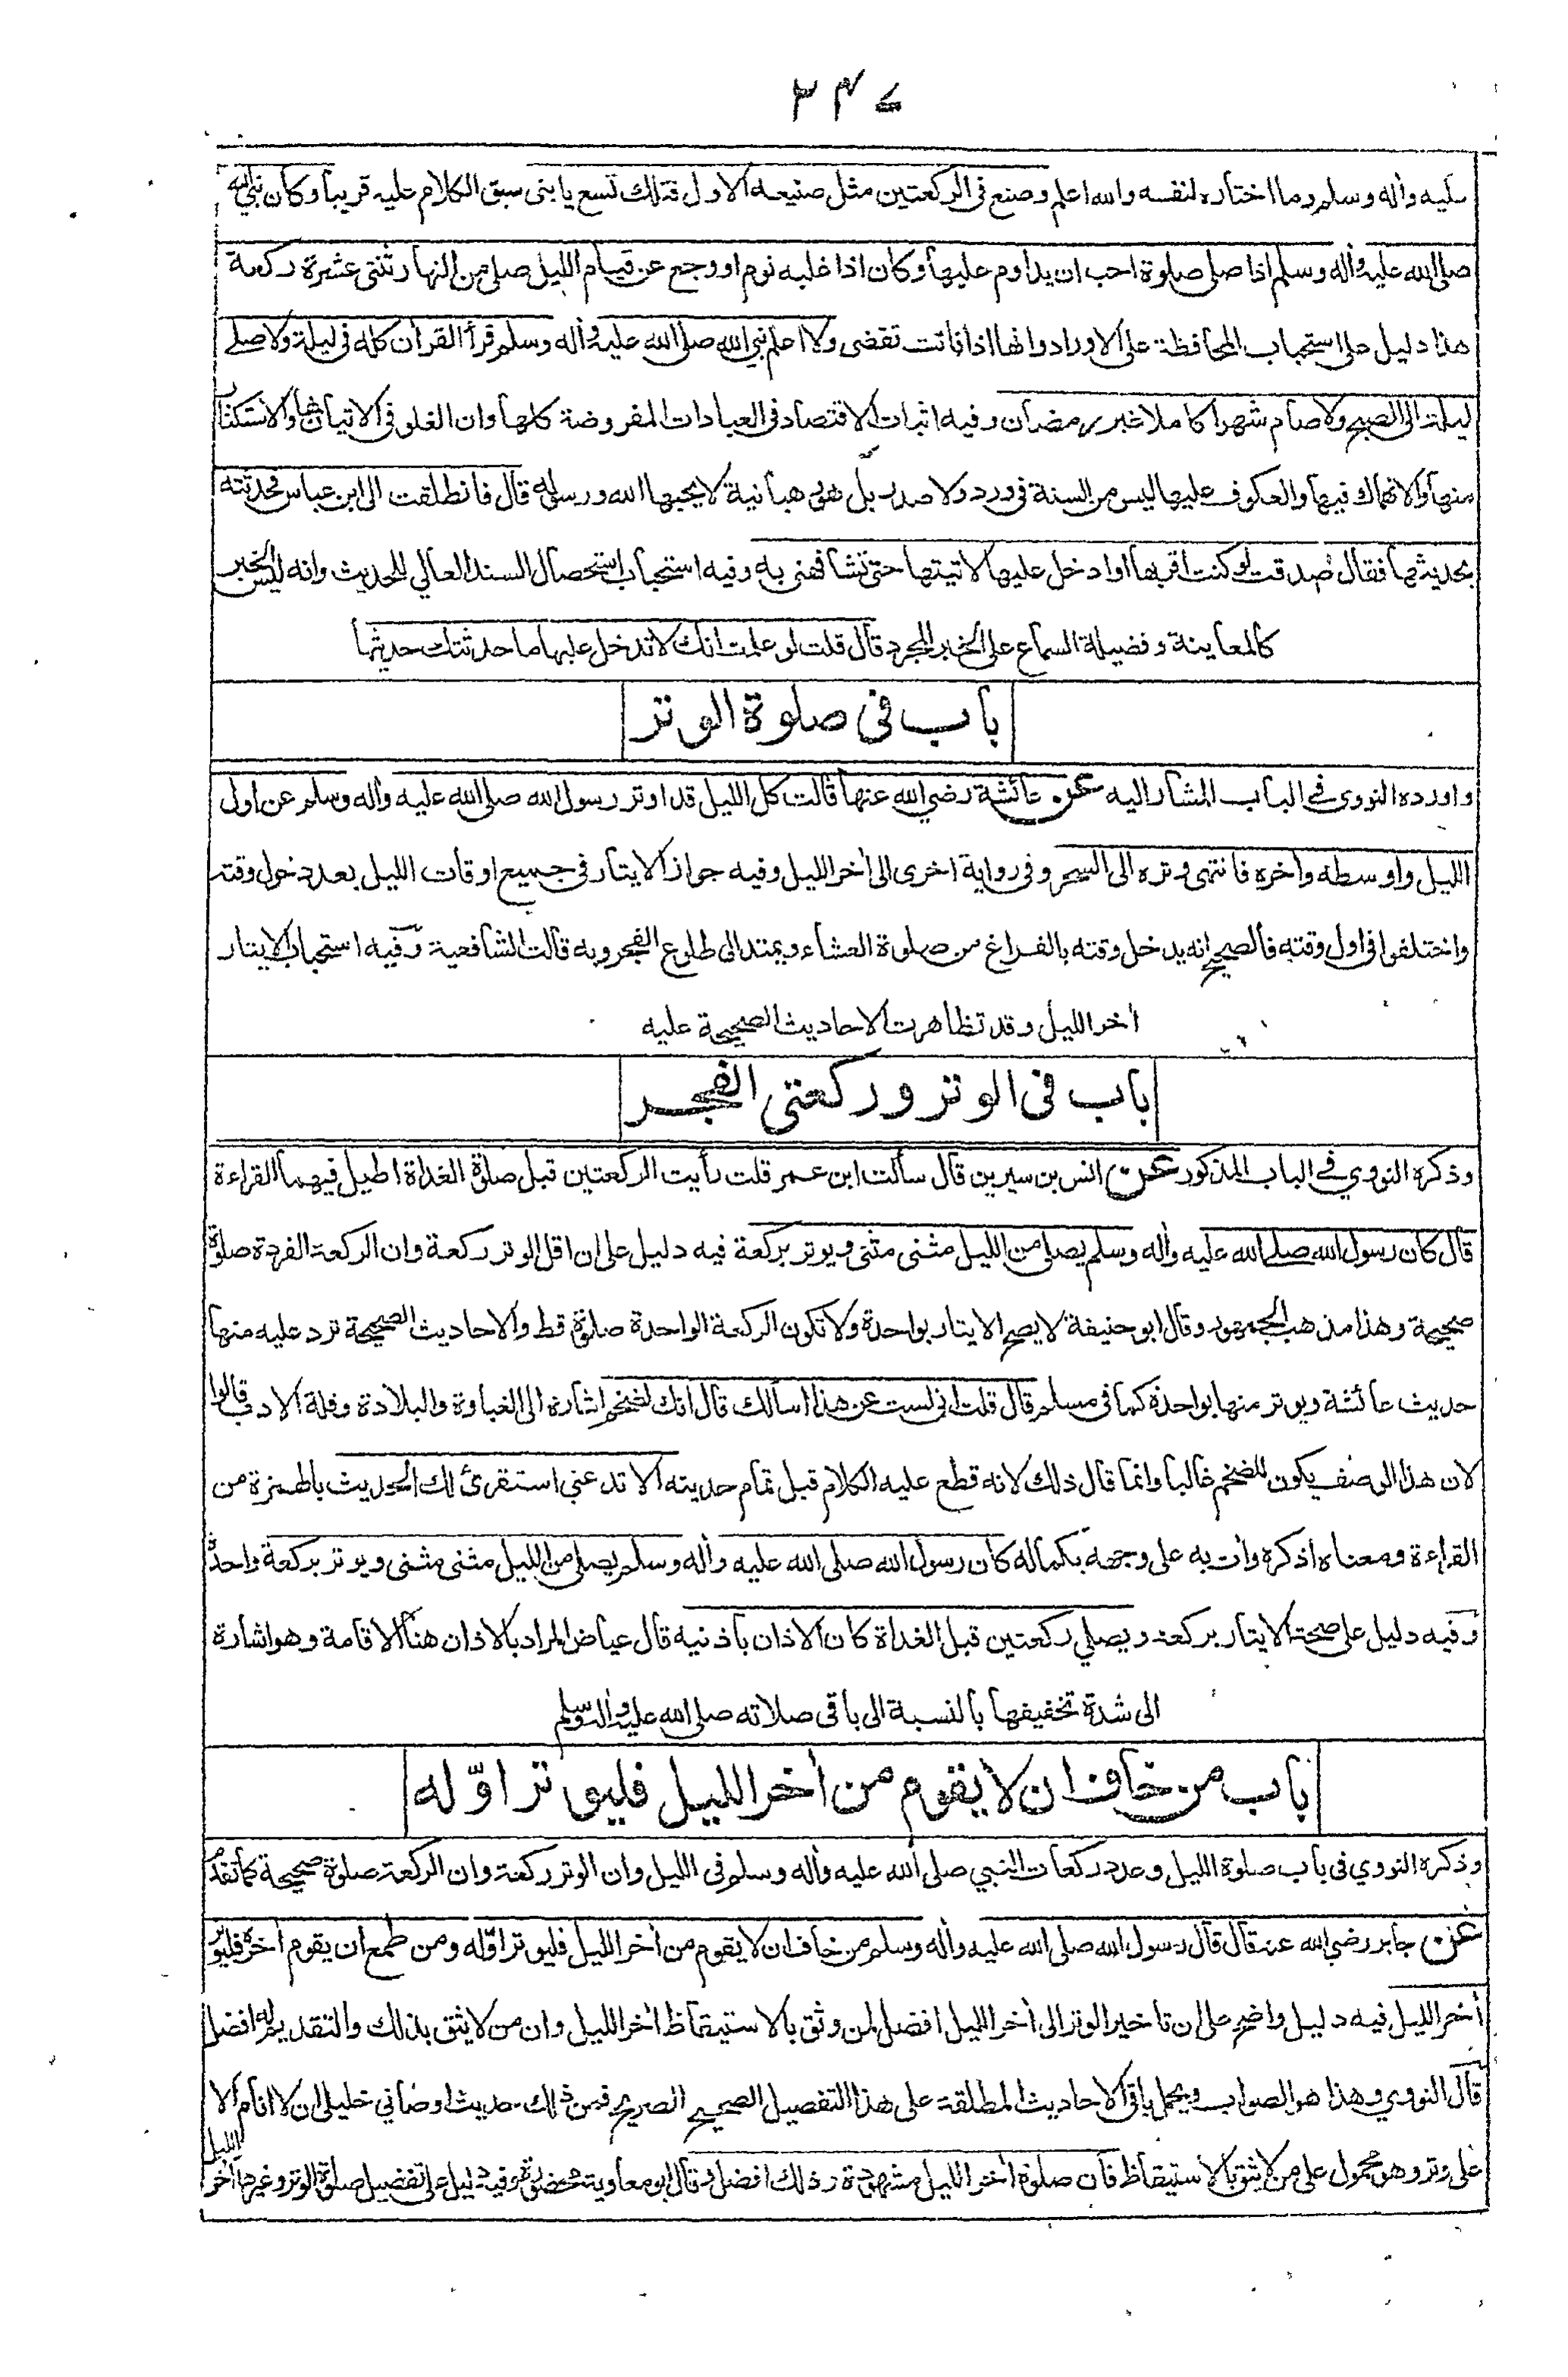 ٣٤٧
عليه واٰله وسلم وما اختاره لنفسه والله اعلم وصنع فى الركعتين مثل صنيعه الاول فتلك تسع يا بنى سبق الكلام عليه قريبا وكان نبي الله
صلى الله عليه واٰله وسلم اذا صلى صلوة احب ان يداوم عليها وكان اذا غلبه نوم او وجع عن قيام الليل صلى من النهار ثنتى عشرة ركعة
هذا دليل على استحباب المحافظة على الاوراد وانها اذا فاتت تقضى ولا اعلم نبي الله صلى الله عليه واٰله وسلم قرأ القراٰن كله فى ليلة ولا صلى
ليلة الى الصبح ولا صام شهرا كاملا غير رمضان وفيه اثبات الاقتصاد فى العبادات المفروضة كلها وان الغلو فى الاتيان بها والاستكثار
منها والانهماك فيها والعكوف عليها ليس من السنة فى ورد ولا صدر بل هو رهبانية لا يحبها الله ورسوله قال فانطلقت الى ابن عباس فحدثته
بحديثها فقال صدقت لو كنت اقربها او ادخل عليها لاتيتها حتى تشافهنى به وفيه استحباب استحصال السند العالي للحديث وانه ليس الخبر
كالمعاينة وفضيلة السماع على الخبر المجرد قال قلت لو علمت انك لا تدخل عليها ما حدثتك حديثها
باب فى صلوة الوتر
واورده النووى فى الباب المشار اليه عن عائشة رضي الله عنها قالت كل الليل قد اوتر رسول الله صلى الله عليه واٰله وسلم عن اول
الليل واوسطه واٰخره فانتهى وتره الى السحر وفى رواية اخرى الى اٰخر الليل وفيه جواز الايتار فى جميع اوقات الليل بعد دخول وقته
واختلفوا فى اول وقته فالصحيح انه يدخل وقته بالفراغ من صلوة العشاء ويمتد الى طلوع الفجر وبه قالت الشافعية وفيه استحباب الايتار
اٰخر الليل وقد تظاهرت الاحاديث الصحيحة عليه
باب فى الوتر وركعتى الفجر
وذكره النووي فى الباب المذكور عن انس بن سيرين قال سألت ابن عمر قلت رأيت الركعتين قبل صلوة الغداة اطيل فيهما القراءة
قال كان رسول الله صلى الله عليه واٰله وسلم يصلى من الليل مثنى مثنى ويوتر بركعة فيه دليل على ان اقل الوتر ركعة وان الركعة الفردة صلوة
صحيحة وهذا مذهب الجمهور وقال ابو حنيفة لا يصح الايتار بواحدة ولا تكون الركعة الواحدة صلوة قط والاحاديث الصحيحة ترد عليه منها
حديث عائشة ويوتر منها بواحدة كما فى مسلم قال قلت انى لست عن هذا اسألك قال انك لضخم اشارة الى الغباوة والبلادة وقلة الادب قالوا
لان هذا الوصف يكون للضخم غالبا وانما قال ذلك لانه قطع عليه الكلام قبل تمام حديثه الا تدعني استقرئ لك الحديث بالهمزة من
القراءة ومعناه اذكره وأت به على وجهه بكماله كان رسول الله صلى الله عليه واٰله وسلم يصلى من الليل مثنى مثنى ويوتر بركعة واحدة
وفيه دليل على صحة الايتار بركعة ويصلي ركعتين قبل الغداة كان الاذان بأذنيه قال عياض المراد بالاذان هنا الاقامة وهو اشارة
الى شدة تخفيفها بالنسبة الى باقى صلاته صلى الله عليه واٰله وسلم
باب من خاف ان لا يقوم من اٰخر الليل فليوتر اوّله
وذكره النووي فى باب صلوة الليل وعدد ركعات النبي صلى الله عليه واٰله وسلم فى الليل وان الوتر ركعة وان الركعة صلوة صحيحة كما تقدم
عن جابر رضي الله عنه قال قال رسول الله صلى الله عليه واٰله وسلم من خاف ان لا يقوم من اٰخر الليل فليوتر اوّله ومن طمع ان يقوم اٰخره فليوتر
اٰخر الليل فيه دليل واضح على ان تاخير الوتر الى اٰخر الليل افضل لمن وثق بالاستيقاظ اٰخر الليل وان من لا يثق بذلك والتقديم له افضل
قال النووي وهذا هو الصواب ويحمل باقى الاحاديث المطلقة على هذا التفصيل الصحيح الصريح فمن ذلك حديث اوصاني خليلى ان لا انام الا
على وتر وهو محمول على من لا يثق بالاستيقاظ فان صلوة اٰخر الليل مشهودة وذلك افضل وقال ابو معاوية محضورة وفيه دليل على تفضيل صلوة الوتر وغيرها اٰخر الليل